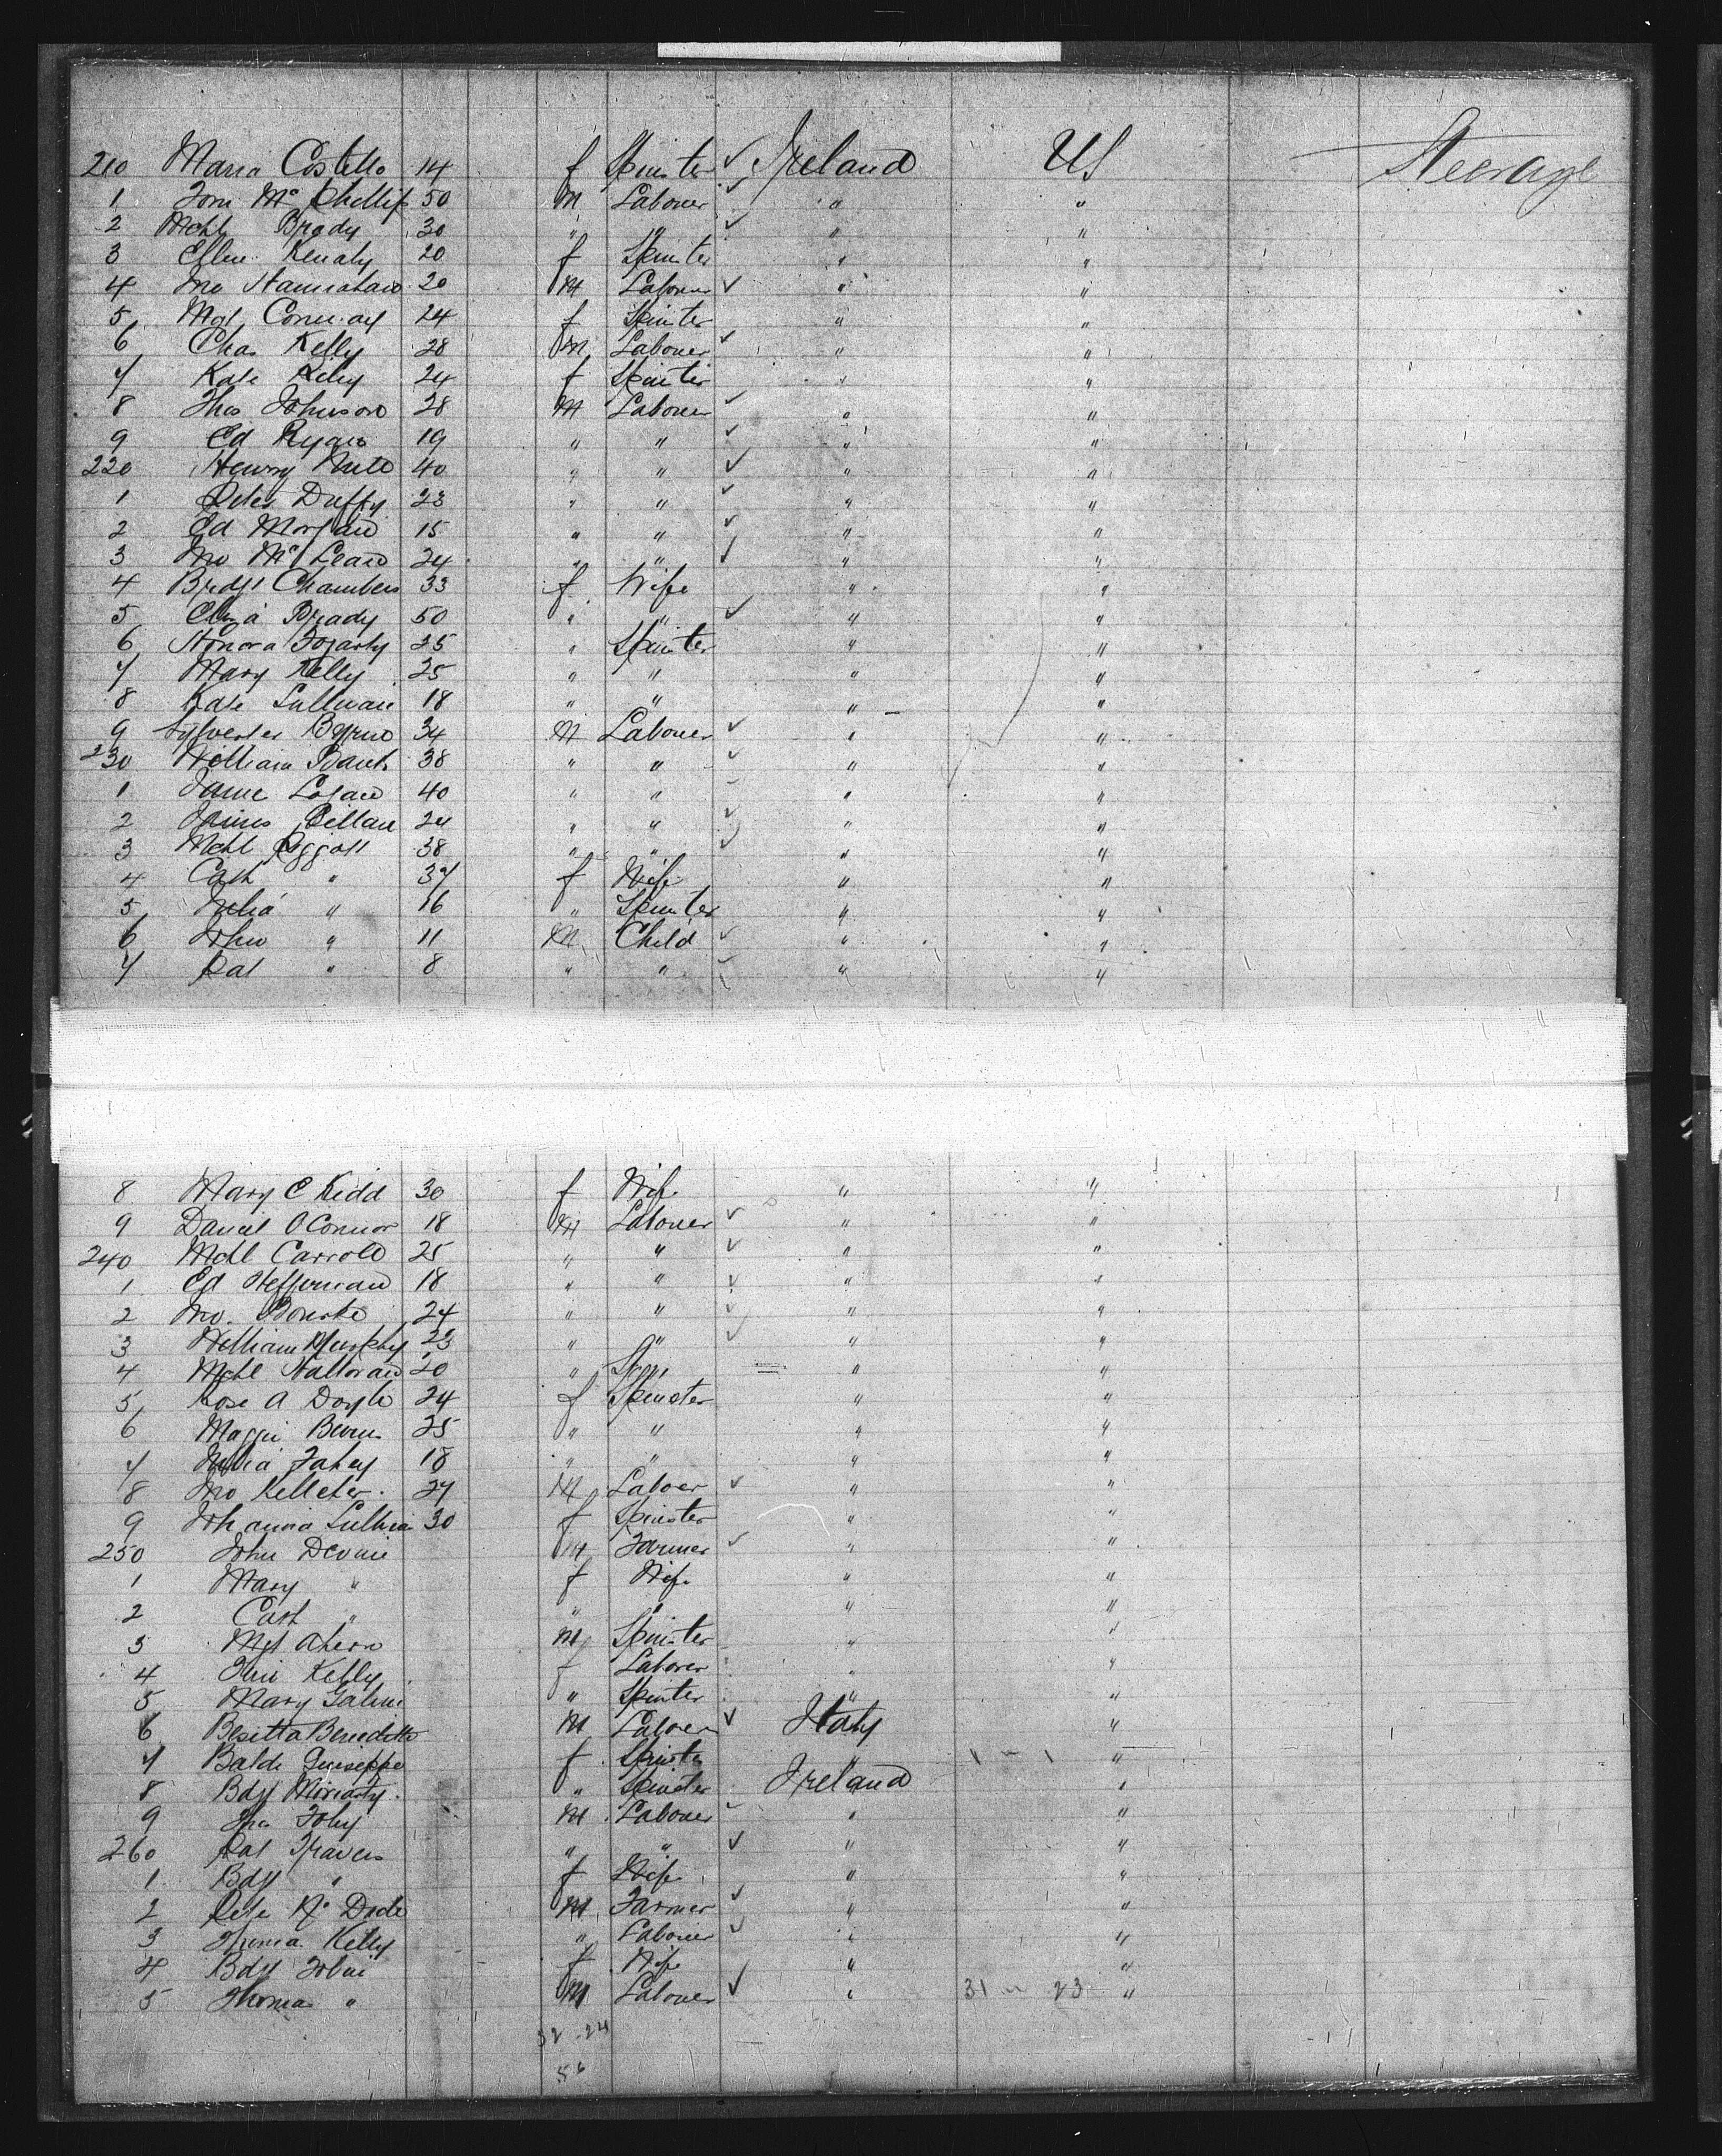 210 Maria Costello 14 f Spinster ✓ Ireland US Steerage
1 Tom Mc Phillip 50 M Labouer ✓ " "
2 Mchl Brady 30 " " ✓ " "
3 Ellen 20 f Spinster " "
4 Jno 20 M Labouer ✓ " "
5 Mgt Conway 24 f Spinster " "
6 Chas Kelly 28 M Labouer ✓ " "
7 Kate Riley 24 f Spinster " "
8 Thos Johnson 28 M Labouer ✓ " "
9 Ed Ryan 19 " " ✓ " "
220 Henry 40 " " ✓ " "
1 Peter Duffy 23 " " ✓ " "
2 Ed Morgan 15 " " ✓ " "
3 Jno Mc Lean 24 " " ✓ " "
4 Bridgt Chambers 33 f Wife " "
5 Eliza Brady 50 " " ✓ " "
6 Honora Fogarty 25 " Spinster " "
7 Mary Kelly 25 " " " "
8 Kate Sullivan 18 " " " "
9 Sylvester Byrne 34 M Labouer ✓ " "
230 William 38 " " ✓ " "
1 Logan 40 " " " "
2 James 24 " " ✓ " "
3 Mchl Piggott 38 " " ✓ " "
4 Cath " 37 f Wife " "
5 Julia " 16 " Spinster " "
6 John " 11 M Child ✓ " "
7 Pat " 8 " " ✓ " "
8 Mary C Kidd 30 f Wife " "
9 Daniel OConnor 18 M Labouer ✓ " "
240 Mchl Carroll 25 " " ✓ " "
1 Ed Heffernan 18 " " ✓ " "
2 Jno. Bourke 24 " " ✓ " "
3 William Murphy 23 " " ✓ " "
4 Mchl Halloran 20 " " "
5 Rose A Doyle 24 f Spinster " "
6 Maggie 25 " " " "
7 Julia Fahey 18 " " " "
8 Jno Kelleher 27 M Laboer ✓ " "
9 Johanna Sullivan 30 f Spinster " "
250 John Devine M Farmer ✓ " "
1 Mary " f Wife " "
2 Cath " " " " "
3 Mgt Ahern M Spinster " "
4 Kelly f Laborer " "
5 Mary " Spinster " "
6 Besetta Benedetto M Laborer ✓ Italy "
7 Baldi Guiseppe f Spinster " "
8 Bdgt Moriarty " Spinster Ireland "
9 Foley M Labouer " "
260 Pat Travers " " ✓ " "
1 Bdgt " f Wife " "
2 Pete Mc Dade M Farmer ✓ " "
3 Kelly " Labouer ✓ " "
4 Bdgt Tobin f Wife " "
5 Thomas " M Labouer ✓ " 31 23 "
32 - 24
56